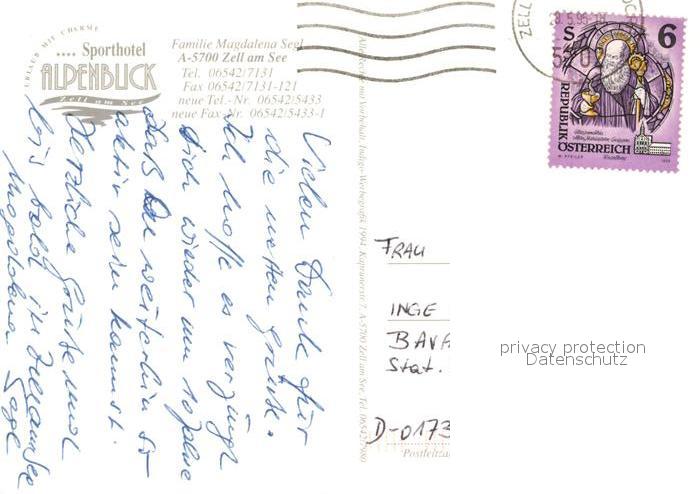 URLAUB MIT CHARME
.... Sporthotel
ALPENBLICK
Zell am See
Familie Magdalena Segl
A-5700 Zell am See
Tel. 06542/7131
Fax 06542/7131-121
neue Tel.-Nr. 06542/5433
neue Fax-Nr. 06542/5433-1
Vielen Dank für
die netten Grüße.
Ich hoffe es verjüngt
Dich wieder um 10 Jahre
daß Du weiterhin so
aktiv sein kannst.
Herzliche Grüße und
bis bald in Zell am See
Magdalena Segl
ZELL
S 6
REPUBLIK
ÖSTERREICH
FRAU
INGE
BAVA
Stat.
D-0173
Postleitza
privacy protection
Datenschutz